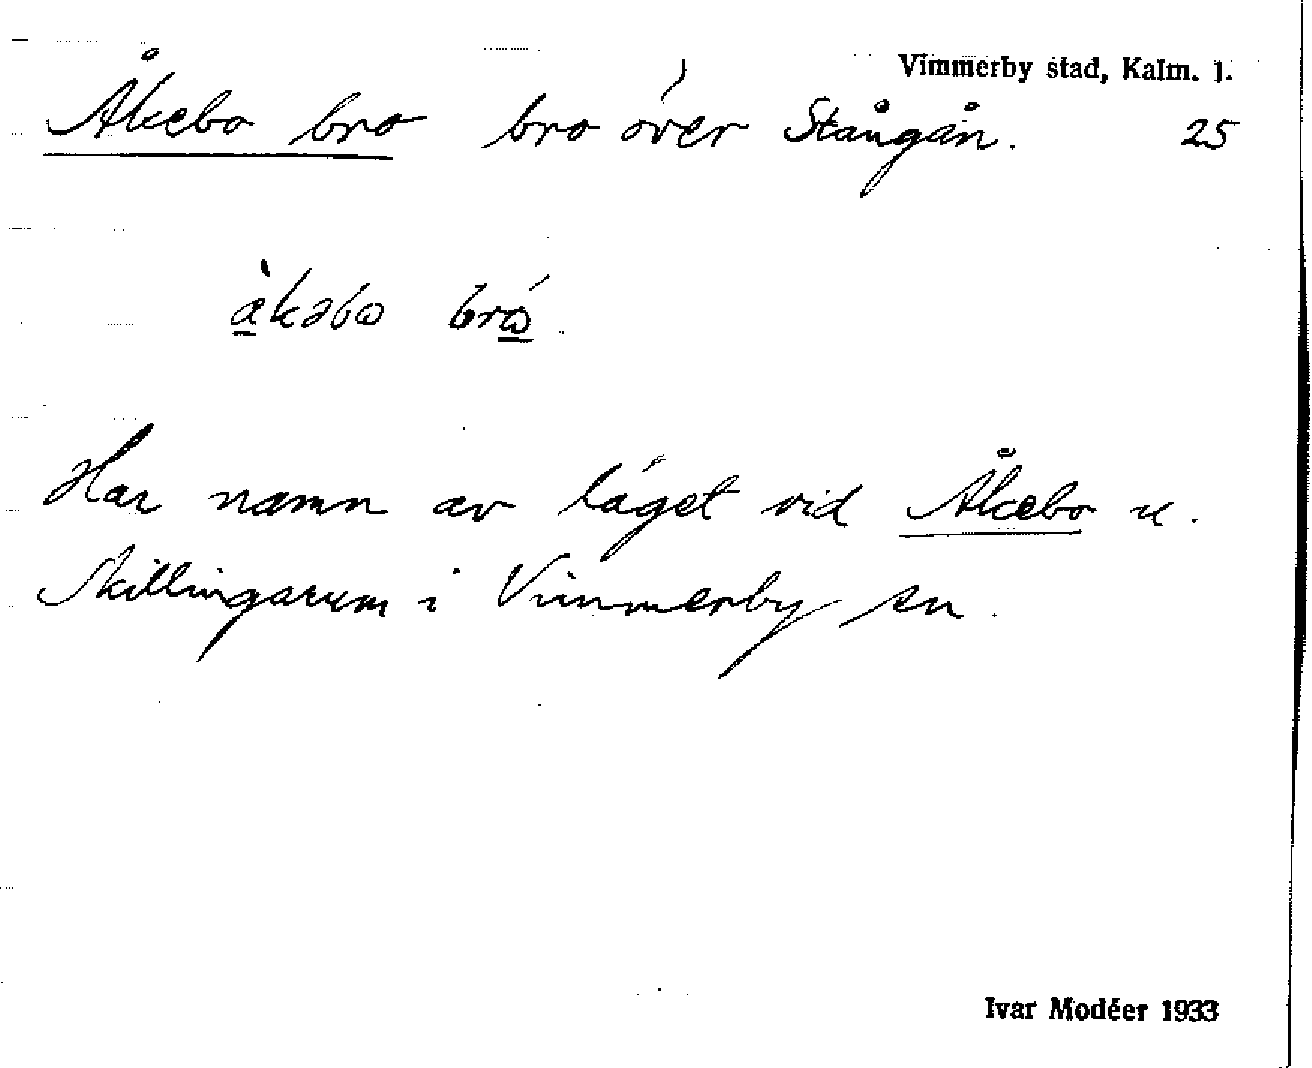 Vimmerby stad, Kalm. l.
Åkebo bro bro över Stångån. 25
àkəbω brώ.
Har namn av läget vid Åkebo u.
Skillingarum i Vimmerby sn.
Ivar Modéer 1933